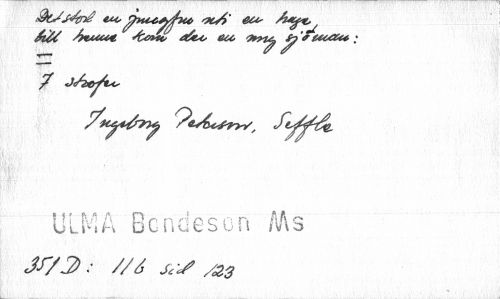 Det stod en jungfru uti en hage,
till henne kom der en ung sjöman:
=
7 strofer
Ingeborg Peterson, Seffle
ULMA Bondeson Ms
351 D: 11b sid 123